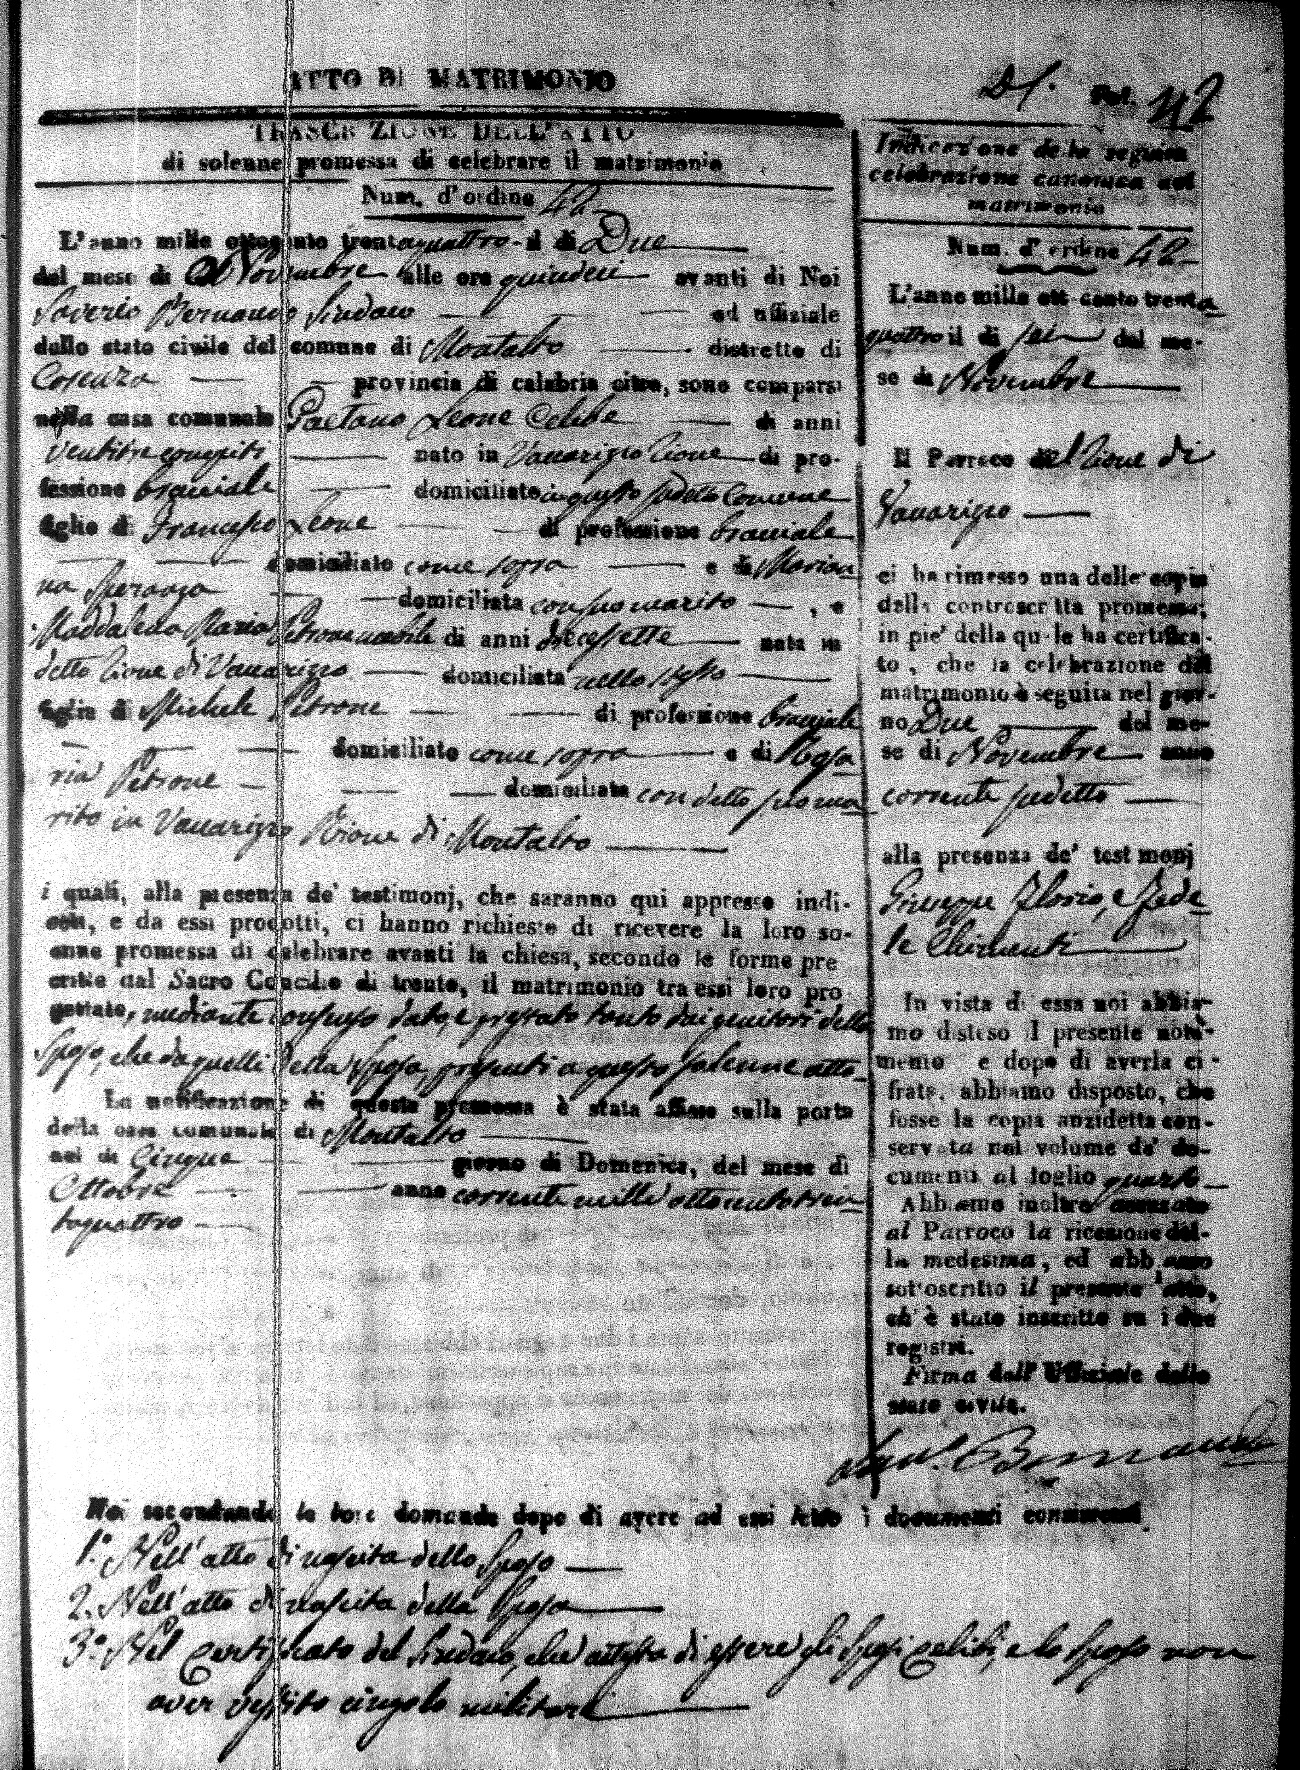 ATTO DI MATRIMONIO
Fol. 42
TRASCRIZIONE DELL'ATTO
di solenne promessa di celebrare il matrimonio
Num. d'ordine 42
L'anno mille ottocento trentaquattro il di Due
del mese di Novembre alle ore quindeci avanti di Noi
Saverio Bernardo Sindaco ed uffiziale
dello stato civile del comune di Montalto distretto di
Cosenza provincia di calabria citra, sono comparsi
nella casa comunale Gaetano Leone Celibe di anni
ventitre compiti nato in Vaccarizzo Rione di pro-
fessione bracciale domiciliato in questo sudetto Comune
figlio di Francesco Leone di professione bracciale
domiciliato come sopra e di Marian
na Speranza domiciliata con suo marito , e
Maddalena Maria Petrone nubile di anni diecessette nata in
detto Rione di Vaccarizzo domiciliata nello stesso
figlia di Michele Petrone di professione bracciale
domiciliato come sopra e di Rosa
ria Petrone domiciliata con detto suo ma
rito in Vaccarizzo Rione di Montalto
i quali, alla presenza de' testimonj, che saranno qui appresso indi-
cati, e da essi prodotti, ci hanno richiesto di ricevere la loro so-
enne promessa di celebrare avanti la chiesa, secondo le forme pre
critte dal Sacro Concilio di trento, il matrimonio tra essi loro pro
gettato, mediante consenso dato, e prestato tanto dai genitori dello
Sposo, che da quelli della Sposa, presenti a questo solenne atto
La notificazione di questa promessa è stata affissa sulla porta
della casa comunale di Montalto
nel di Cinque giorno di Domenica, del mese di
Ottobre anno corrente mille ottocentotren
taquattro
Indicazione della seguita
celebrazione canonica del
matrimonio
Num. d'ordine 42
L'anno mille ott cento trenta
quattro il di sei del me-
se di Novembre
Il Parroco del Rione di
Vaccarizzo
ci ha rimesso una delle copie
della controscritta promessa;
in pie' della quale ha certifica-
to, che la celebrazione del
matrimonio è seguita nel gior-
no Due del me-
se di Novembre anno
corrente sudetto
alla presenza de' testimonj
Giuseppe Florio, e Fede
le Chimenti
In vista di essa noi abbia-
mo disteso il presente noti-
mento e dopo di averla ci-
frata, abbiamo disposto, che
fosse la copia anzidetta con-
servata nel volume de' do-
cumenti al foglio quarto
Abbiamo inoltre accusato
al Parroco la ricezione del-
la medesima, ed abbiamo
sottoscritto il presente atto,
ch' è stato inscritto su i due
registri.
Firma dell' Uffiziale dello
stato civile.
Bernardo
Noi secondando le loro domande dopo di avere ad essi letto i documenti consistenti
1.° Nell'atto di nascita dello Sposo
2. Nell'atto di nascita della Sposa
3.° Nel Certificato del Sindaco, che attesta di essere gli Sposi celibi, e lo sposo non
aver vestito cingolo militare